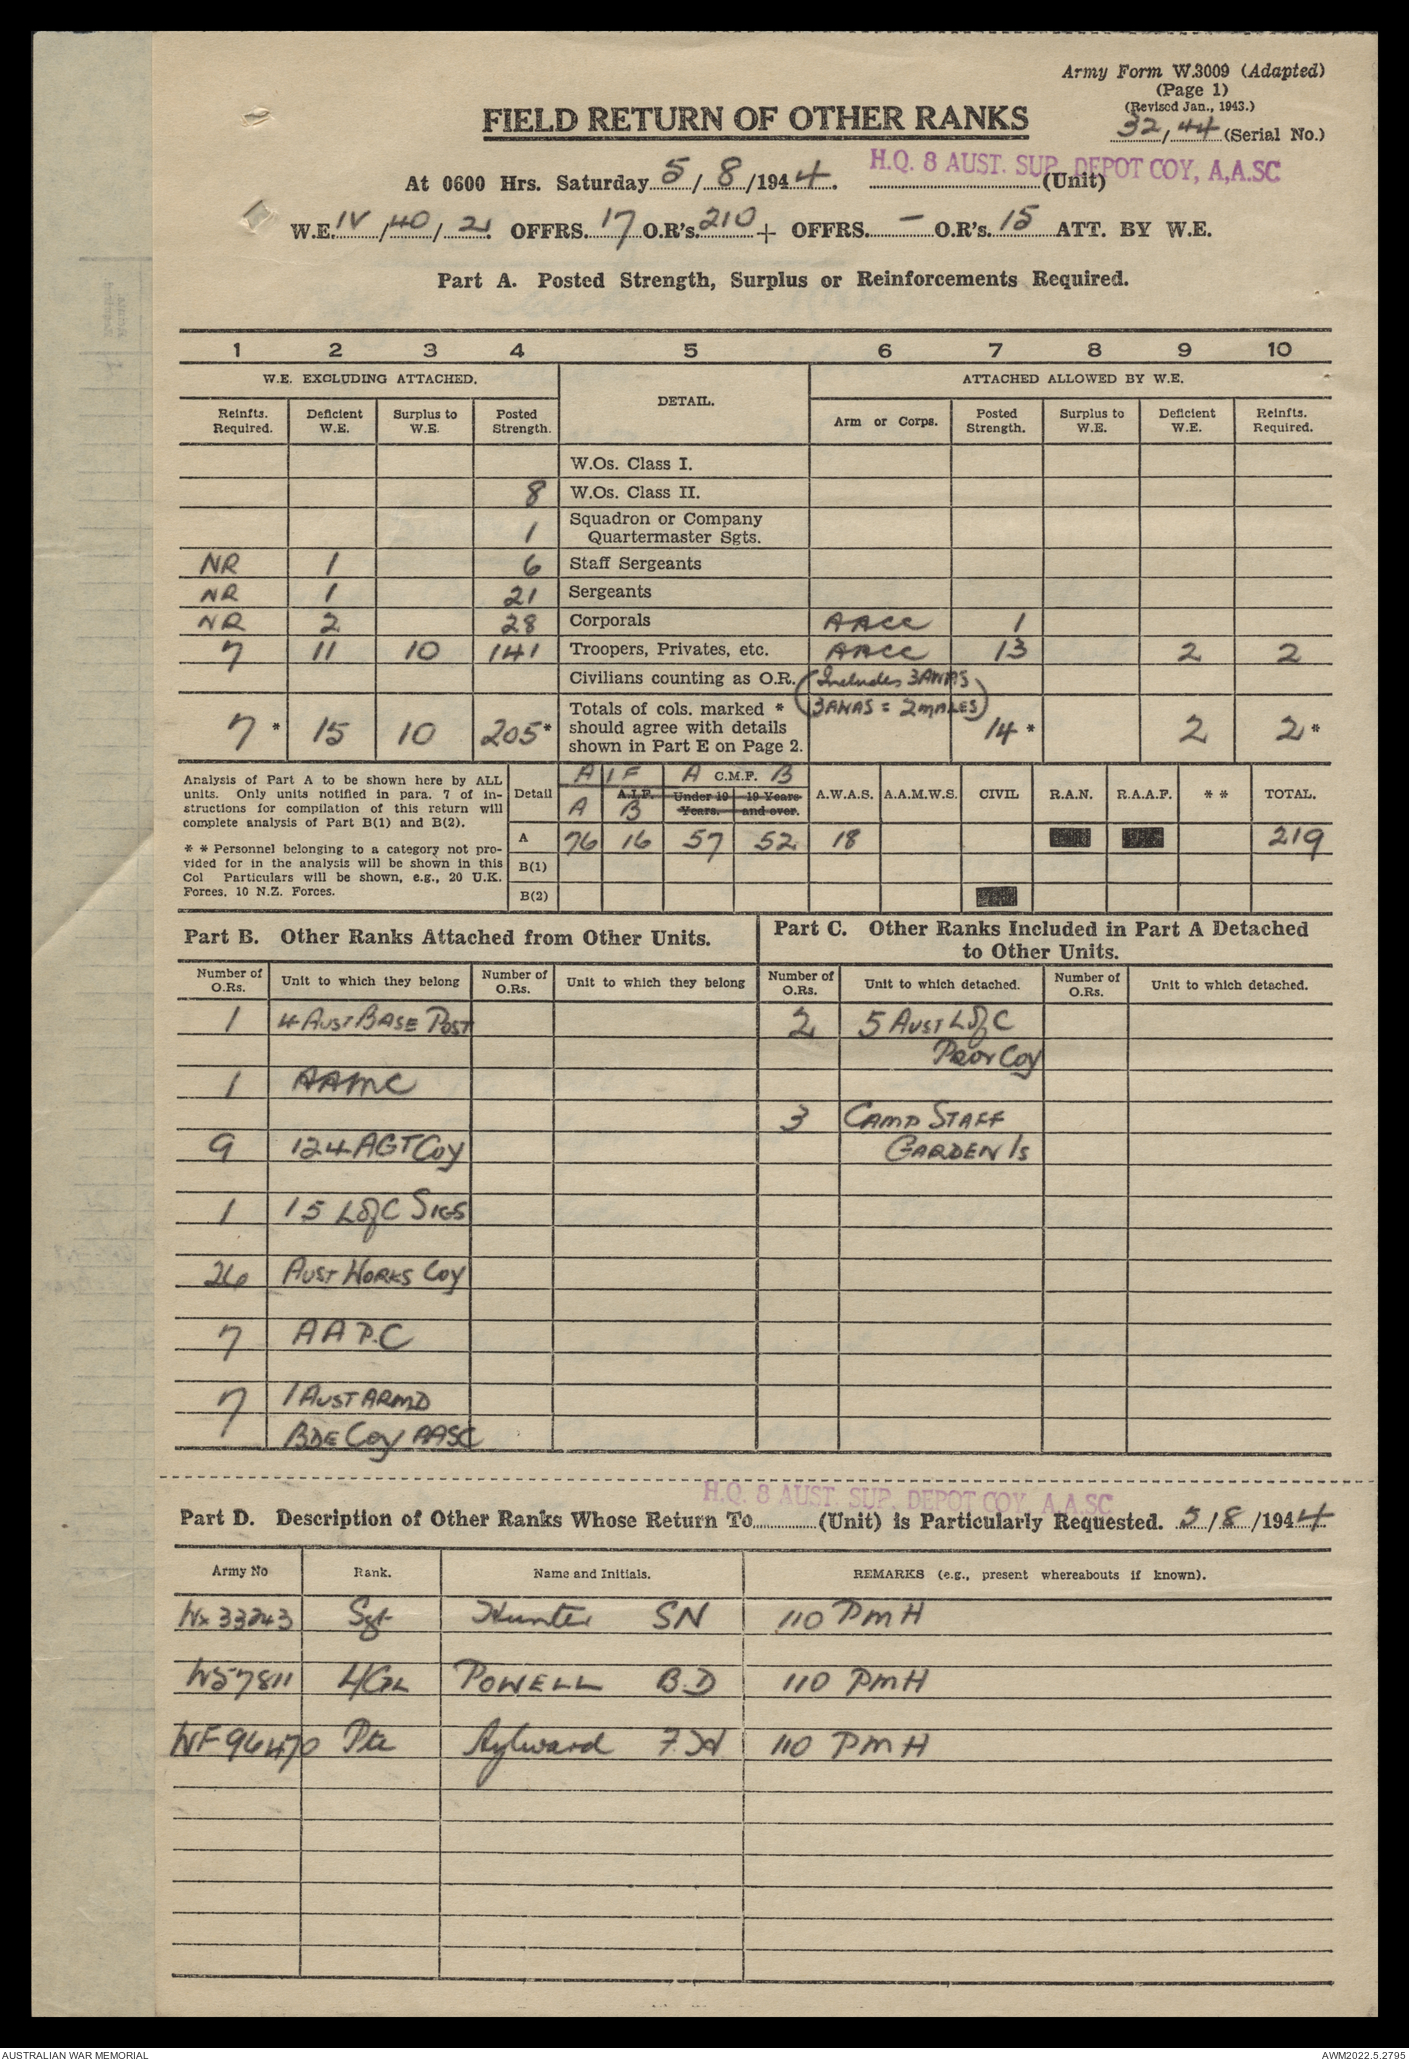 Army Form W.3009 (Adapted)
(Page 1)
(Revised Jan., 1943.)
FIELD RETURN OF OTHER RANKS
32/44 (Serial No.)
H.Q. 8 AUST. SUP. DEPOT COY, A,A.SC
At 0600 Hrs. Saturday 5/8/1944. (Unit)
W.E. IV/40/2. OFFRS. 17 O.R's. 210 + OFFRS. — O.R's. 15 ATT. BY W.E.
Part A. Posted Strength, Surplus or Reinforcements Required.
1 2 3 4 5 6 7 8 9 10
W.E. EXCLUDING ATTACHED. DETAIL. ATTACHED ALLOWED BY W.E.
Reinfts. Required. Deficient W.E. Surplus to W.E. Posted Strength. Arm or Corps. Posted Strength. Surplus to W.E. Deficient W.E. Reinfts. Required.
W.Os. Class I.
8 W.Os. Class II.
1 Squadron or Company Quartermaster Sgts.
NR 1 6 Staff Sergeants
NR 1 21 Sergeants
NR 2 28 Corporals AACC 1
7 11 10 141 Troopers, Privates, etc. AACC 13 2 2
Civilians counting as O.R. (Includes 3 AWAS
3 AWAS = 2 MALES)
7* 15 10 205* Totals of cols. marked * should agree with details shown in Part E on Page 2. 14* 2 2*
Analysis of Part A to be shown here by ALL
units. Only units notified in para. 7 of in-
structions for compilation of this return will
complete analysis of Part B(1) and B(2).
* * Personnel belonging to a category not pro-
vided for in the analysis will be shown in this
Col Particulars will be shown, e.g., 20 U.K.
Forces, 10 N.Z. Forces.
A I F A C.M.F. B
Detail A.I.F. Under 19 Years. 19 Years and over. A.W.A.S. A.A.M.W.S. CIVIL R.A.N. R.A.A.F. * * TOTAL.
A B
A 76 16 57 52 18 219
B(1)
B(2)
Part B. Other Ranks Attached from Other Units.
Part C. Other Ranks Included in Part A Detached
to Other Units.
Number of O.Rs. Unit to which they belong Number of O.Rs. Unit to which they belong Number of O.Rs. Unit to which detached. Number of O.Rs. Unit to which detached.
1 4 AUST BASE POST 2 5 AUST L of C
PROV COY
1 AAMC
3 CAMP STAFF
9 124 AGT COY GARDEN Is
1 15 L of C SIGS
26 AUST WORKS COY
7 AAP.C
7 1 AUST ARMD
BDE COY AASC
H.Q. 8 AUST. SUP. DEPOT COY, A.A.SC
Part D. Description of Other Ranks Whose Return To (Unit) is Particularly Requested. 5/8/1944
Army No Rank. Name and Initials. REMARKS (e.g., present whereabouts if known).
Nx 33243 Sgt Hunter SN 110 PMH
W57811 L/CPL POWELL B.D 110 PMH
WF 96470 Pte Aylward 110 PMH
AUSTRALIAN WAR MEMORIAL
AWM2022.5.2795